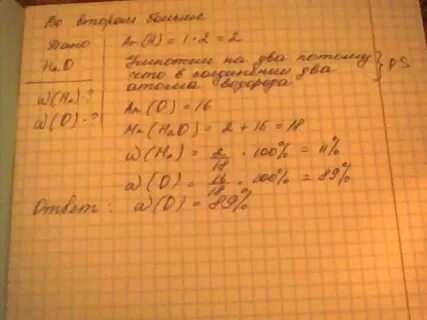 Во втором больше
Дано Ar(H) = 1 · 2 = 2
H₂O Умножили на два потому
что в соединении два
атома водорода } PS
ω(H₂)-?
ω(O)-? Ar(O) = 16
Mr(H₂O) = 2 + 16 = 18
ω(H₂) = 2/18 · 100% = 11%
ω(O) = 16/18 · 100% = 89%
Ответ: ω(O) = 89%